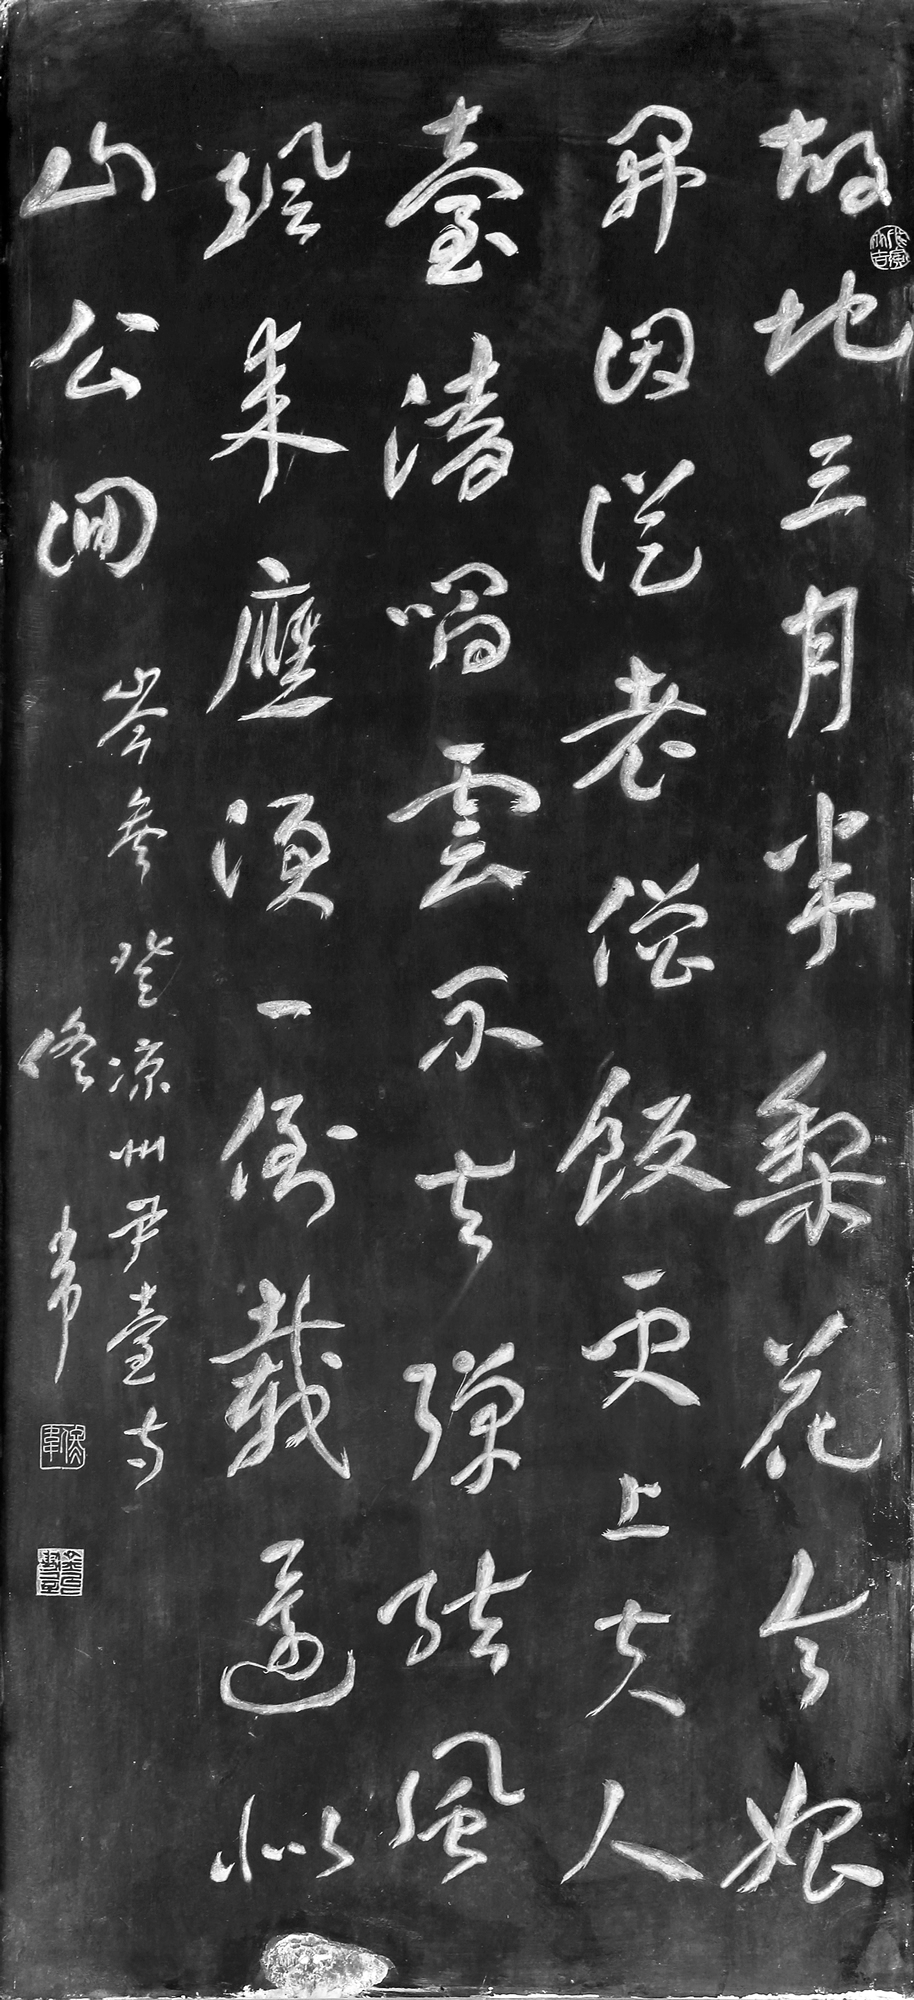 胡地三月半梨花今始
開因從老僧飯更上夫人
臺清唱雲不去彈絃風
颯來應須一倒載還似
山公回
岑參登凉州尹臺寺